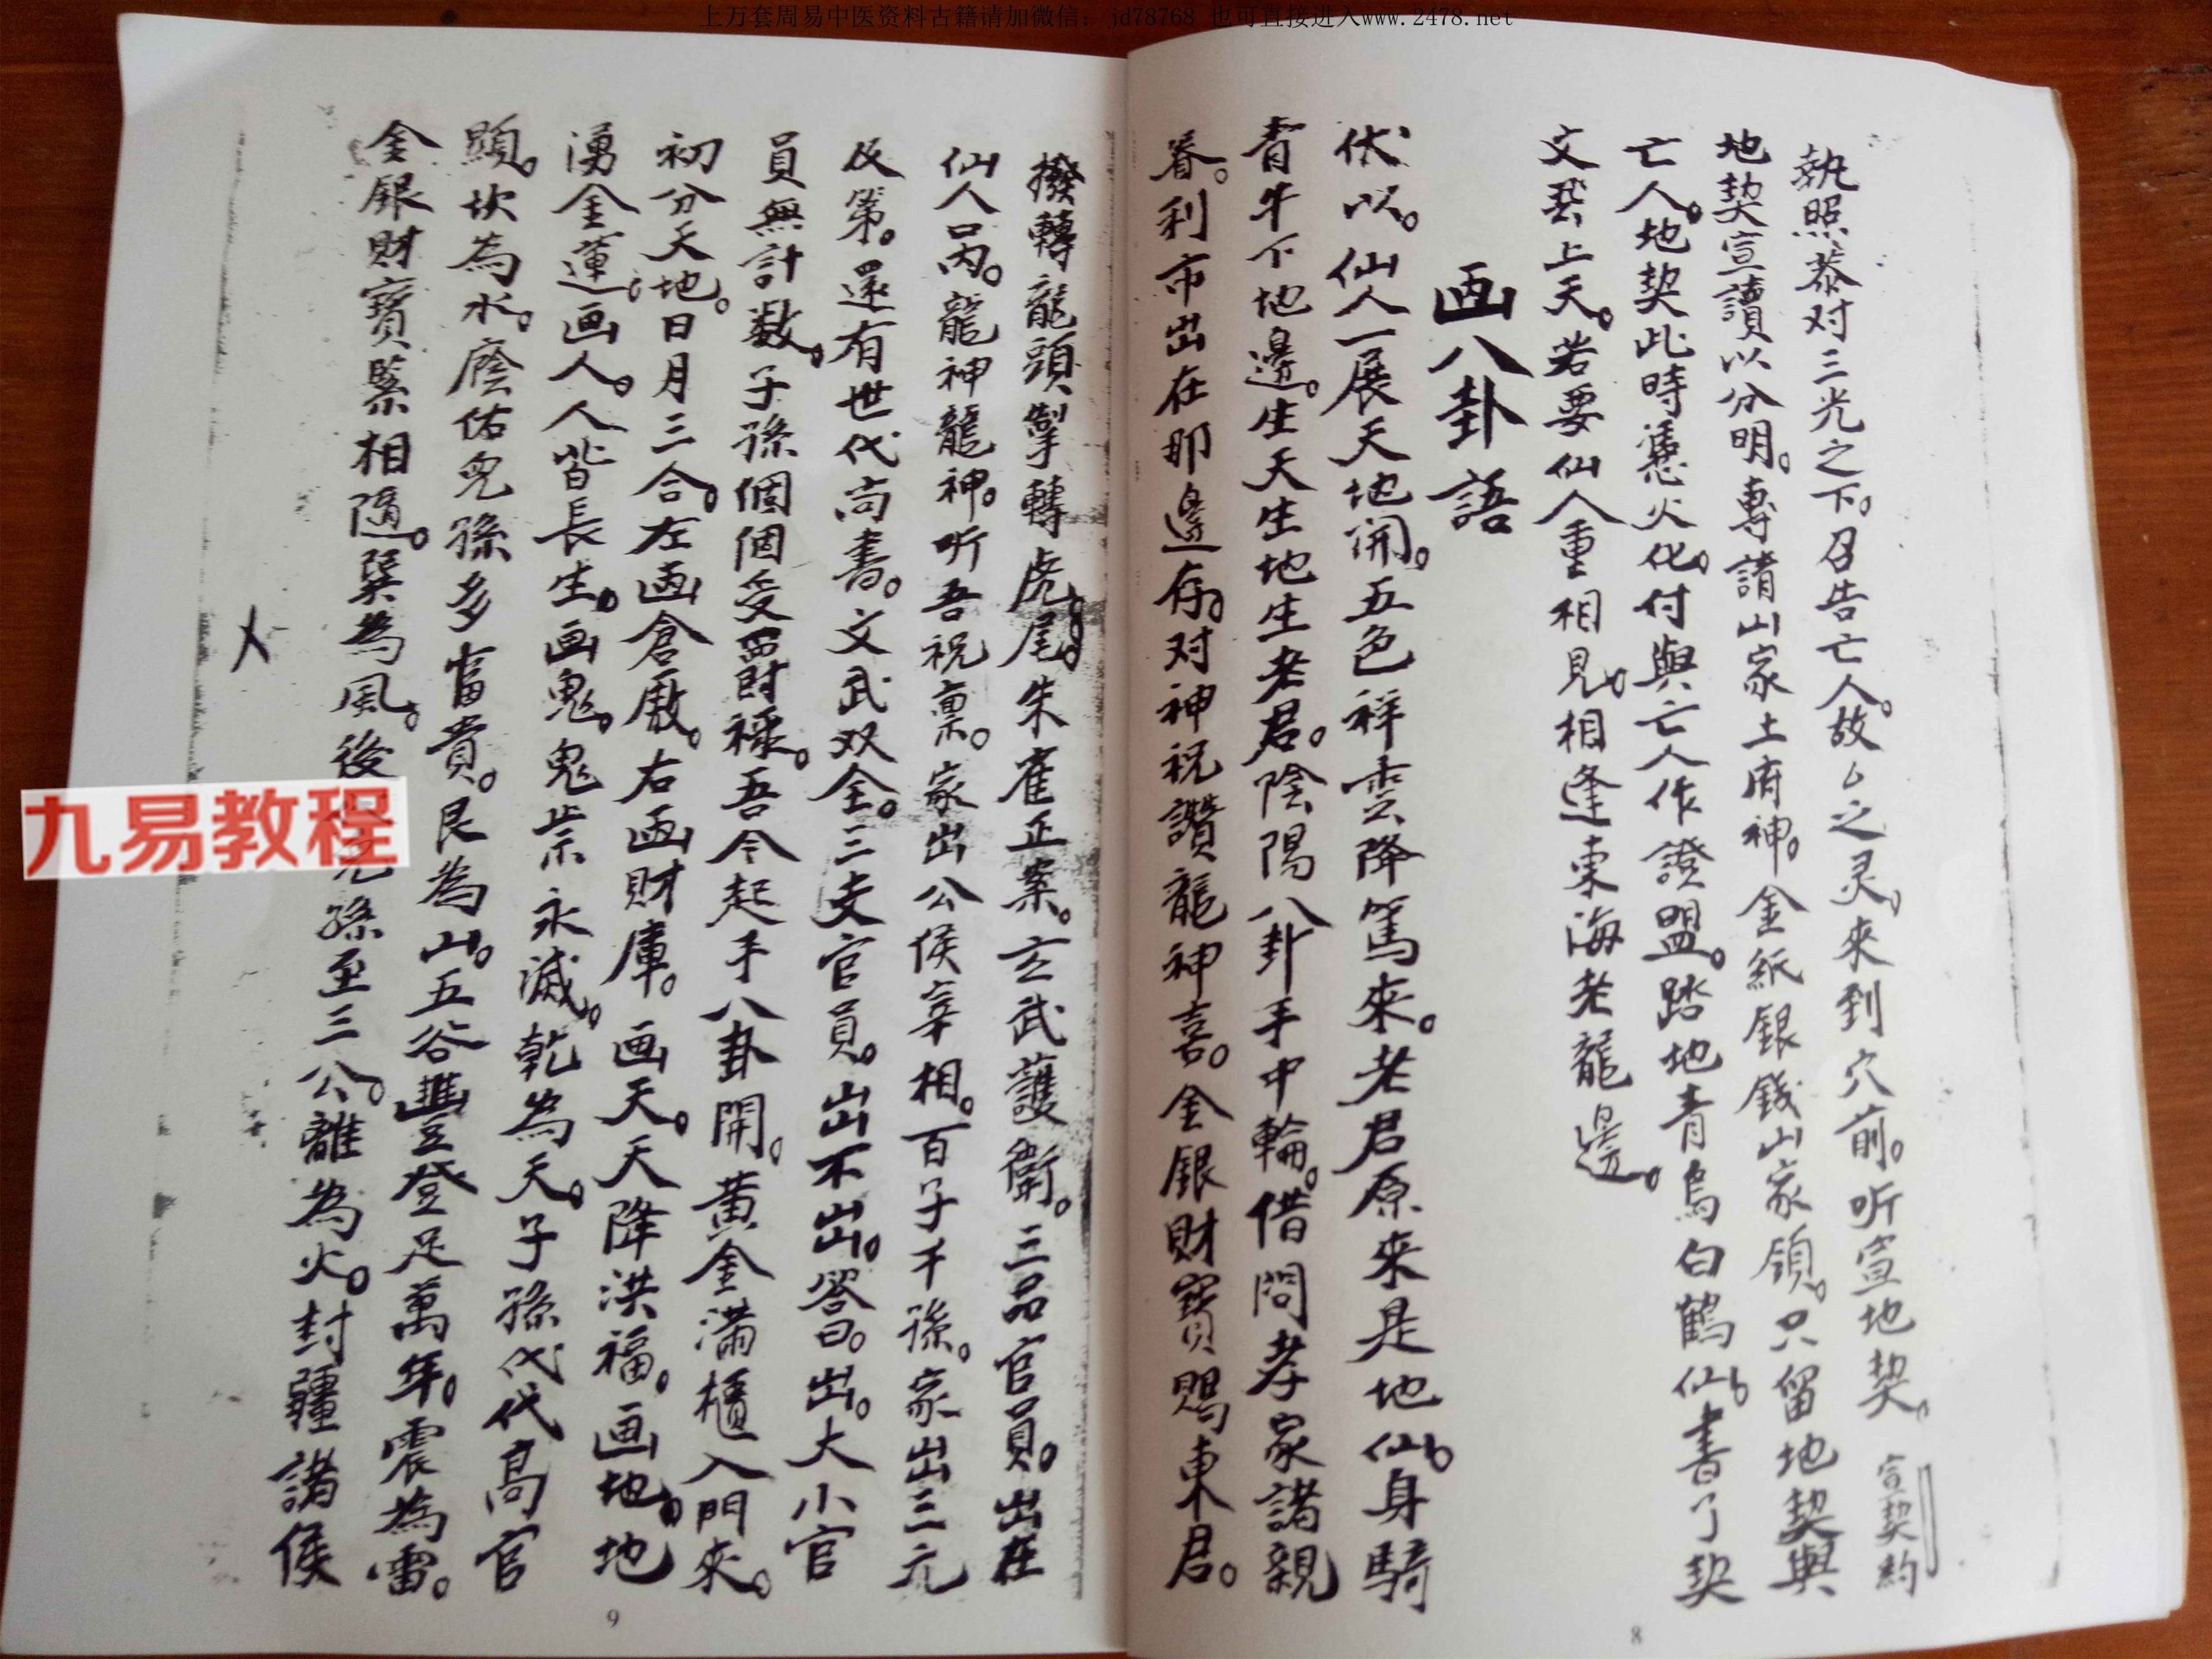 上万套周易中医资料古籍请加微信：jd78768 也可直接进入www.2478.net
執照恭对三光之下。召告亡人。故之灵。來到穴前。听宣地契。宣契約
地契宣讀以分明。專請山家土府神。金紙銀錢山家領。只留地契與
亡人。地契此時憑火化。付與亡人作證盟。踏地青烏白鶴仙。書了契
文上天。若要仙人重相見。相逢東海老龍邊。
画八卦語
伏以。仙人一展天地開。五色祥雲降篤來。老君原來是地仙。身騎
青牛下地邊。生天生地生老君。陰陽八卦手中輪。借問孝家諸親
眷。利市出在那邊存。对神祝讚龍神喜。金銀財寶賜東君。
撥轉龍頭掣轉虎尾。朱雀正案。玄武護衛。三品官員。出在
仙人丙。龍神龍神。听吾祝稟。家出公侯宰相。百子千孫。家出三元
及第。還有世代尚書。文武双全。三支官員。出不出。答曰。出。大小官
員無計数。子孫個個受爵祿。吾今起手八卦開。黃金滿櫃入門來。
初分天地。日月三合。左画倉廒。右画財庫。画天。天降洪福。画地。地
湧金蓮。画人。人皆長生。画鬼。鬼祟永滅。乾為天。子孫代代高官
顯。坎為水。蔭佑兒孫多富貴。艮為山。五谷豐登足萬年。震為雷。
金銀財寶緊相隨。巽為風。後孫至三公。離為火。封疆諸侯
九易教程
9
8